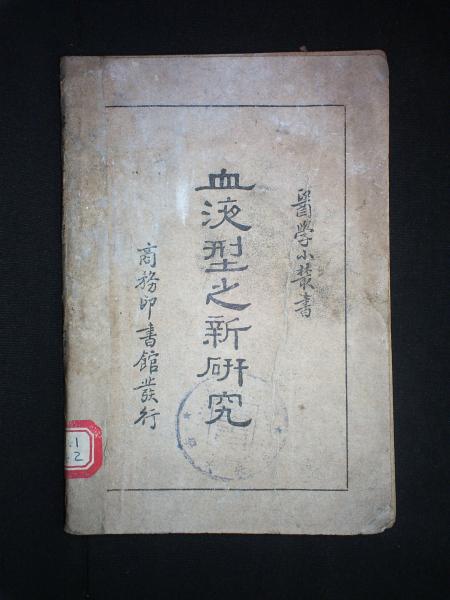 醫學小叢書
血液型之新研究
商務印書館發行
.1
.2